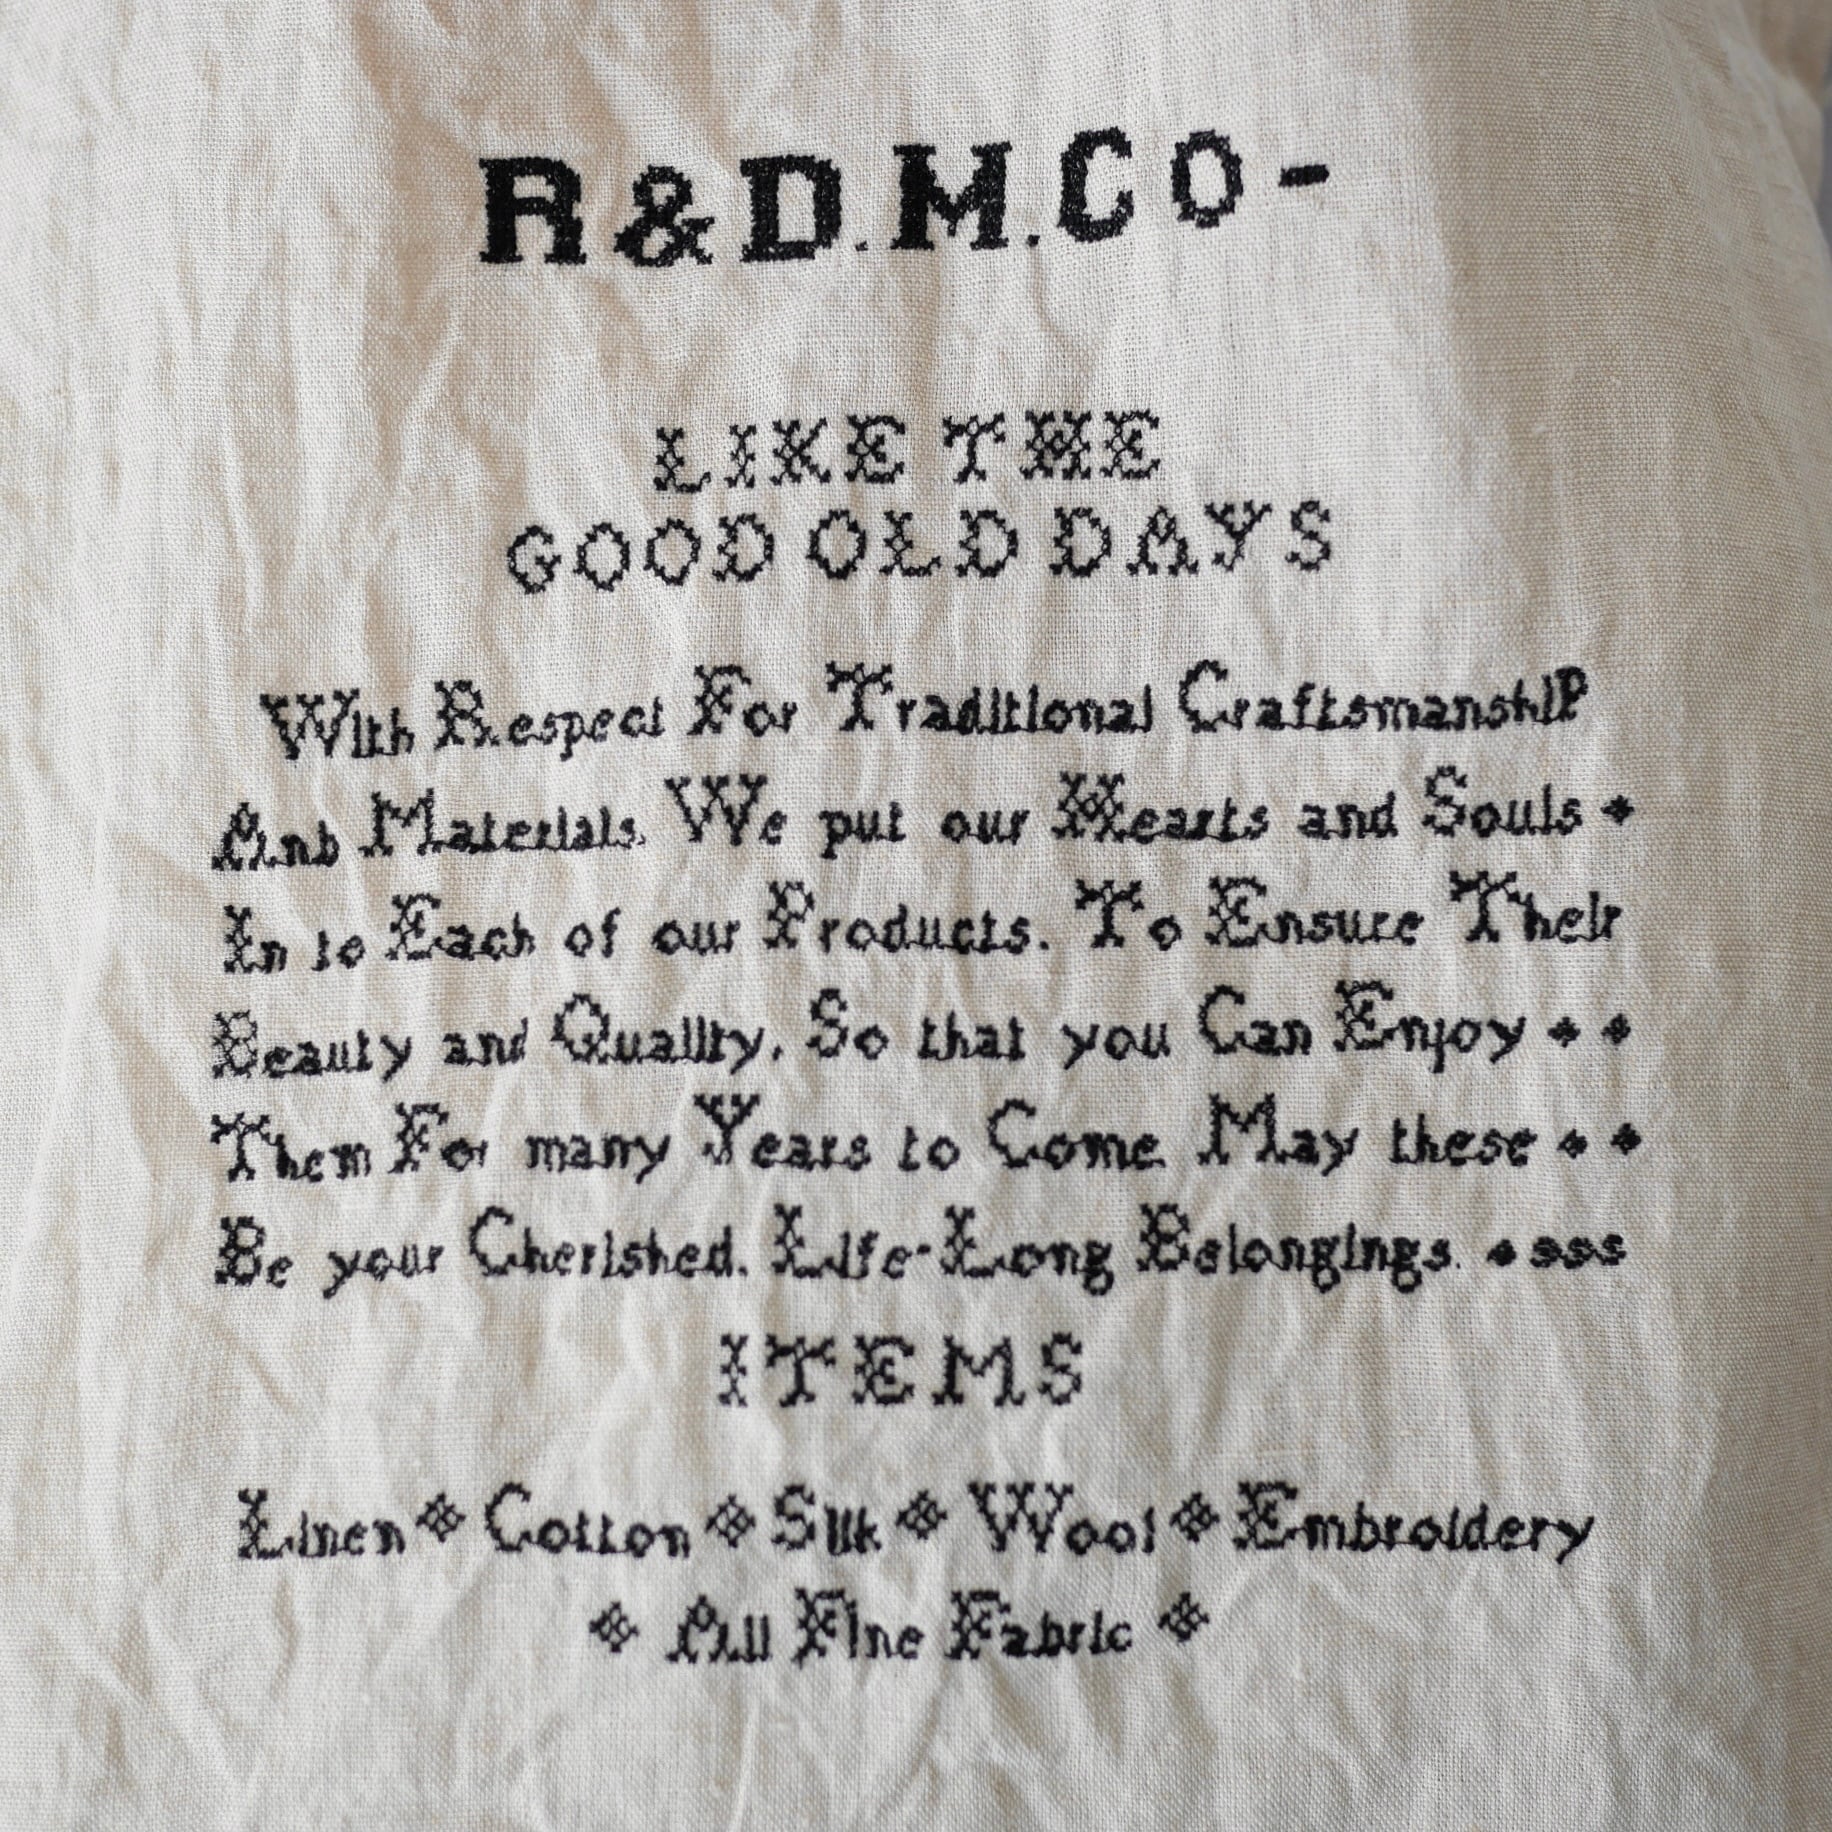 R&D.M.CO-
LIKE THE
GOOD OLD DAYS
With Respect For Traditional CraftsmanshiP
And Materials. We put our Hearts and Souls
In to Each of our Products. To Ensure Their
Beauty and Quality. So that you Can Enjoy
Them For many Years to Come. May these
Be your Cherished. Life-Long Belongings.
ITEMS
Linen Cotton Silk Wool Embroidery
All Fine Fabric